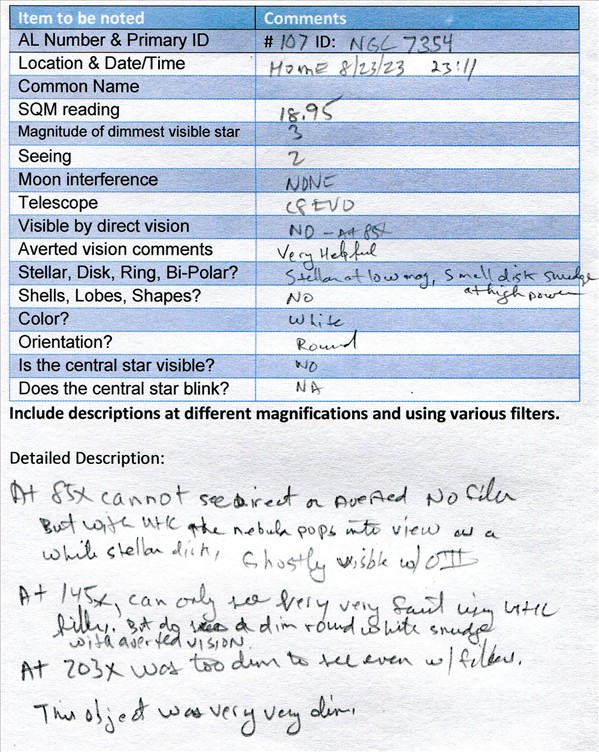 Item to be noted Comments
AL Number & Primary ID # 107 ID: NGC 7354
Location & Date/Time Home 8/23/23 23:11
Common Name
SQM reading 18.95
Magnitude of dimmest visible star 3
Seeing 2
Moon interference NONE
Telescope C8 EVO
Visible by direct vision NO - At 85X
Averted vision comments Very Helpful
Stellar, Disk, Ring, Bi-Polar? Stellar at low mag, Small disk smudge
at high power
Shells, Lobes, Shapes? NO
Color? White
Orientation? Round
Is the central star visible? NO
Does the central star blink? NA
Include descriptions at different magnifications and using various filters.
Detailed Description:
At 85X cannot see direct or Averted No filter
But with UHC the nebula pops into view as a
white stellar disk, Ghostly visible w/ OIII
At 145x, can only see very very faint using UHC
filter. But do see a dim round white smudge
with averted vision.
At 203X was too dim to see even w/ filters.
This object was very very dim.